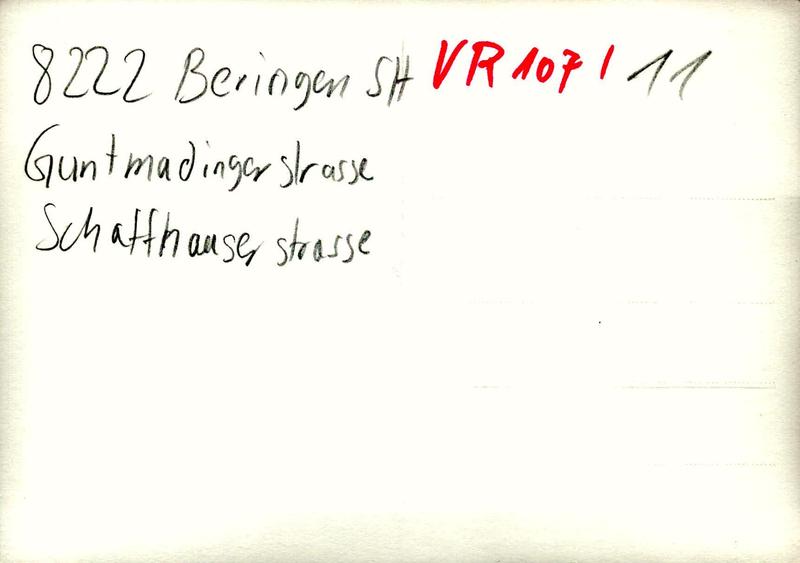 8222 Beringen SH VR 107 / 11
Guntmadingerstrasse
Schaffhauserstrasse